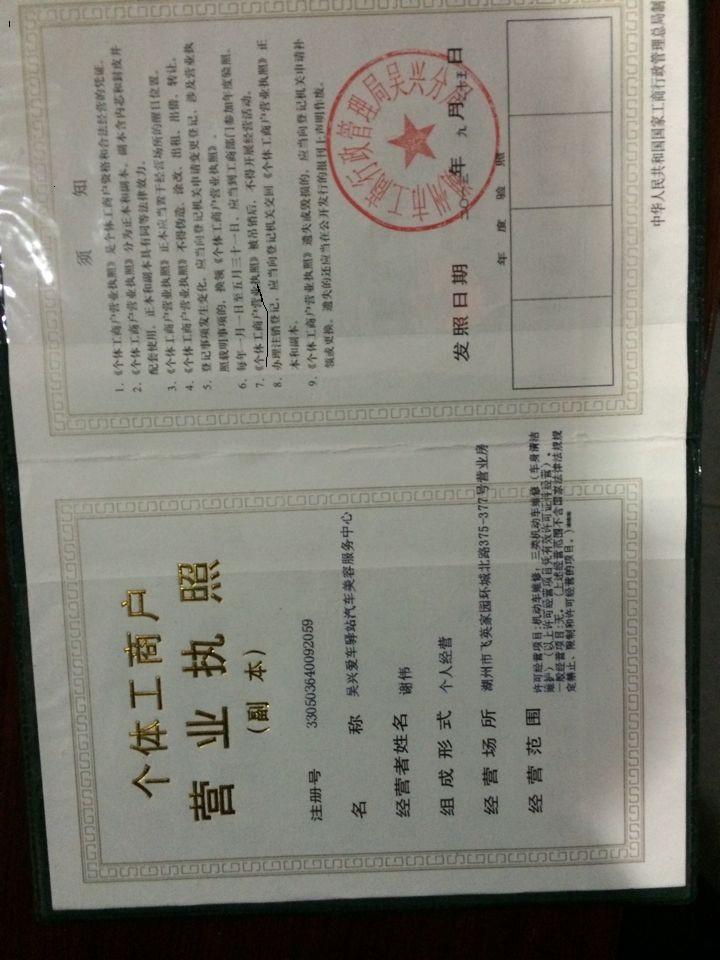 个体工商户
营业执照
（副 本）
注册号 330503640092059
名称 吴兴爱车驿站汽车美容服务中心
经营者姓名 谢伟
组成形式 个人经营
经营场所 湖州市飞英家园环城北路375-377号营业房
经营范围 许可经营项目:机动车维修：三类机动车维修（车身清洁
维护）（以上许可经营项目凭有效许可证件经营）。
一般经营项目:无。（上述经营范围不含国家法律法规规
定禁止、限制和许可经营的项目。）
须 知
1.《个体工商户营业执照》是个体工商户资格和合法经营的凭证。
2.《个体工商户营业执照》分为正本和副本，副本含内芯和封皮并
配套使用，正本和副本具有同等法律效力。
3.《个体工商户营业执照》正本应当置于经营场所的醒目位置。
4.《个体工商户营业执照》不得伪造、涂改、出租、出借、转让。
5. 登记事项发生变化，应当向登记机关申请变更登记，涉及营业执
照载明事项的，换领《个体工商户营业执照》。
6. 每年一月一日至五月三十一日，应当到工商部门参加年度验照。
7.《个体工商户营业执照》被吊销后，不得开展经营活动。
8. 办理注销登记，应当向登记机关交回《个体工商户营业执照》正
本和副本。
9.《个体工商户营业执照》遗失或毁损的，应当向登记机关申请补
领或更换。遗失的还应当在公开发行的报刊上声明作废。
工商行政管理局吴兴分局
发照日期 年 九 月 日
年度验照
中华人民共和国国家工商行政管理总局制